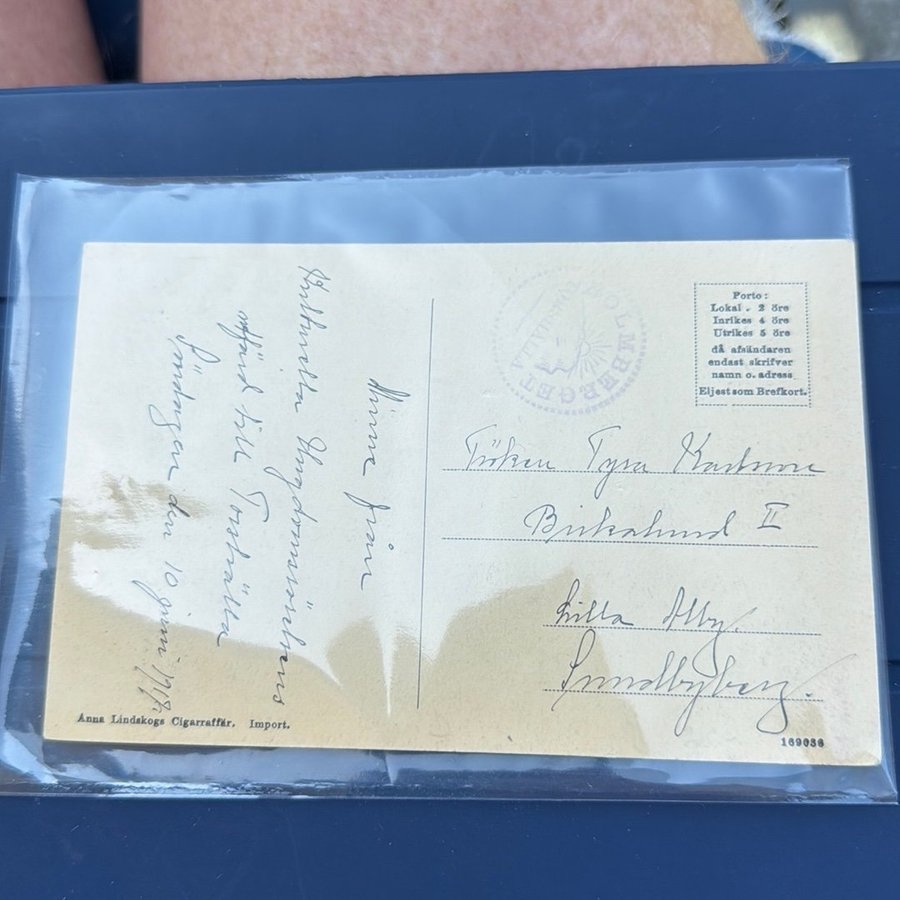 Minne från
Huthwila Ungdomsvärlens
affärd till Torshälla
Söndagen den 10 juni 1917.
HOLMBERGET
Porto:
Lokal . 2 öre
Inrikes 4 öre
Utrikes 5 öre
då afsändaren
endast skrifver
namn o. adress
Eljest som Brefkort.
Fröken Tyra Karlsson
Birkalund II
Lilla Alby.
Sundbyberg.
Anna Lindskogs Cigarraffär. Import.
169036